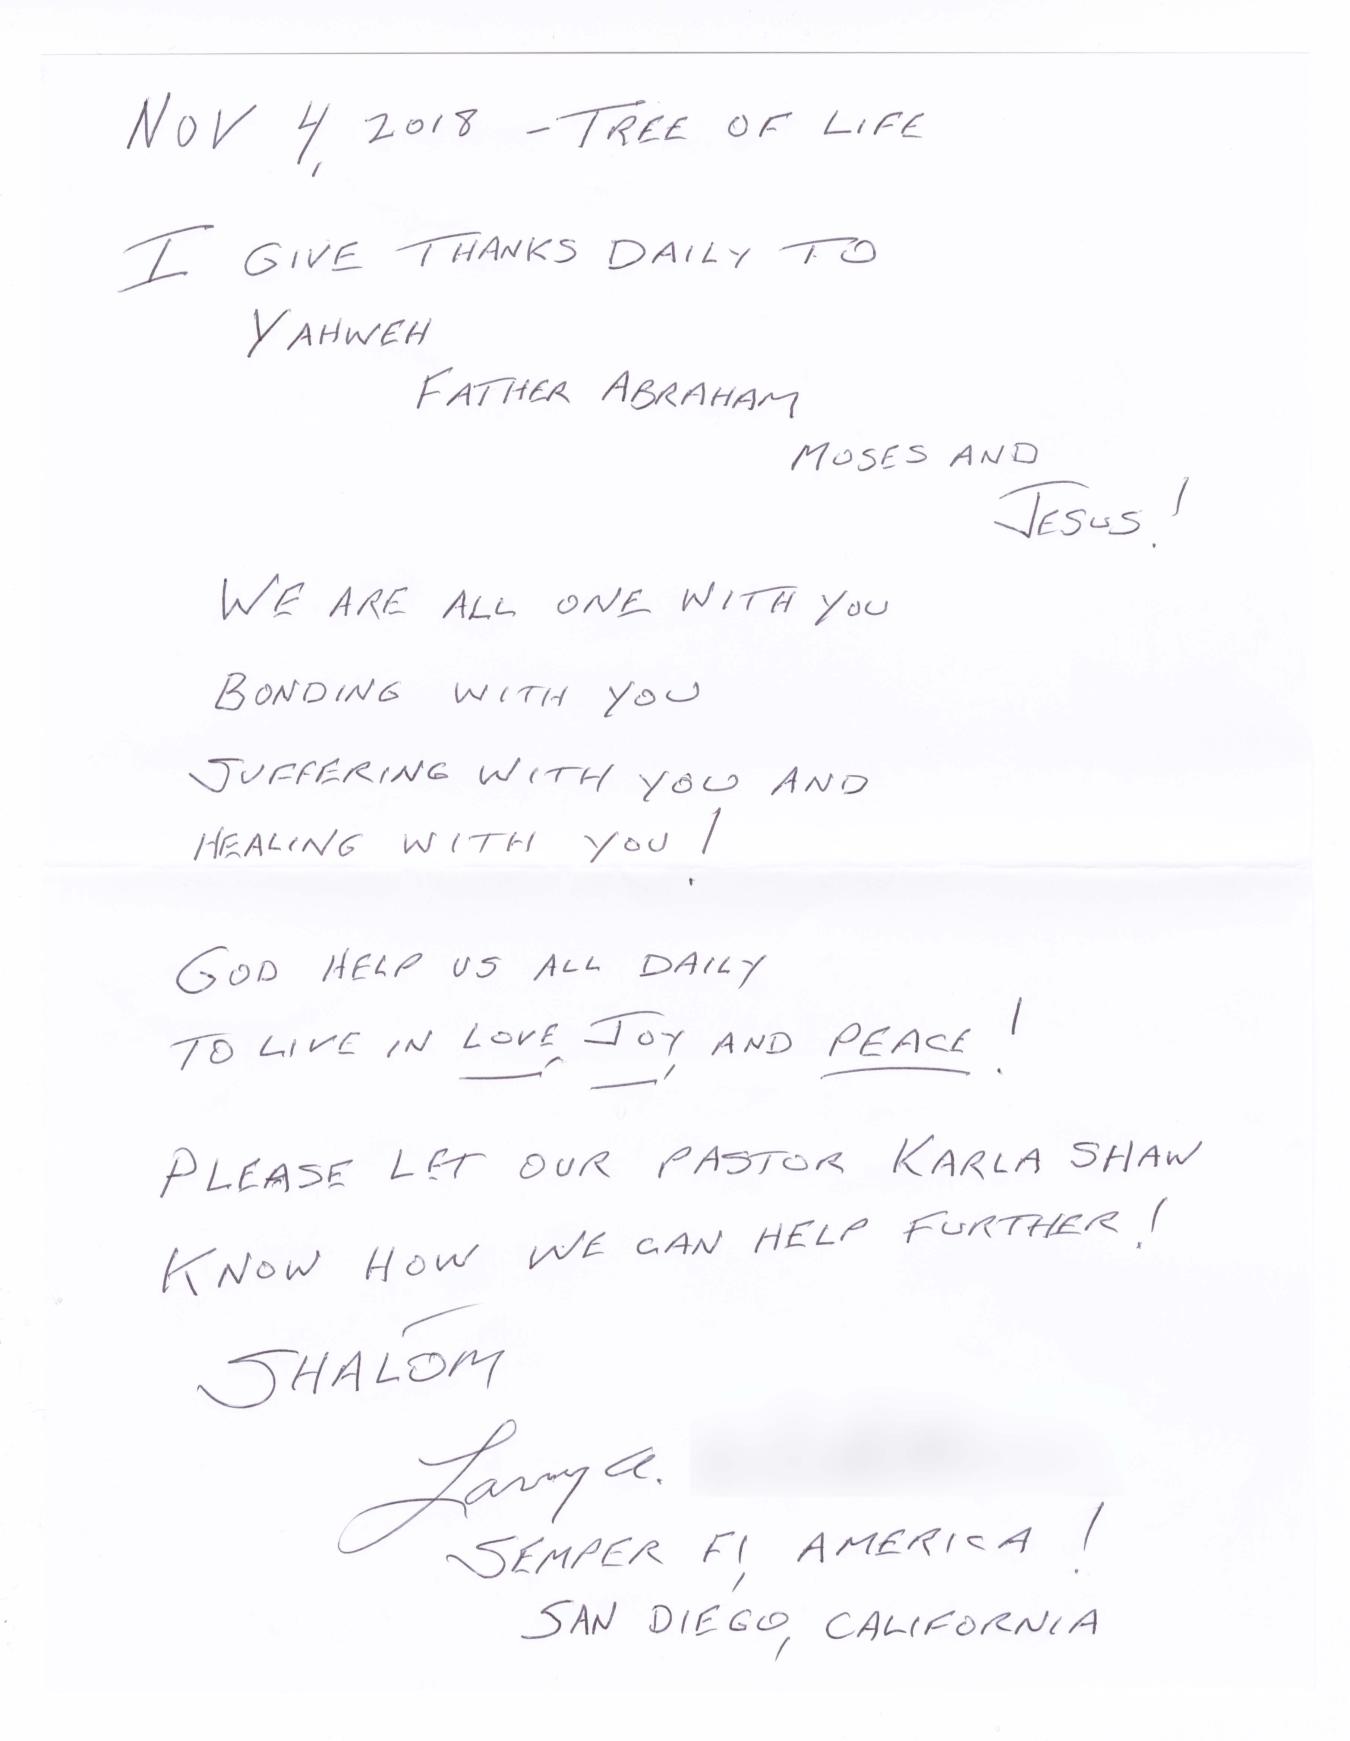 NOV 4, 2018 - TREE OF LIFE
I GIVE THANKS DAILY TO
YAHWEH
FATHER ABRAHAM
MOSES AND
JESUS!
WE ARE ALL ONE WITH YOU
BONDING WITH YOU
SUFFERING WITH YOU AND
HEALING WITH YOU!
GOD HELP US ALL DAILY
TO LIVE IN LOVE, JOY, AND PEACE!
PLEASE LET OUR PASTOR KARLA SHAW
KNOW HOW WE CAN HELP FURTHER!
SHALOM
Larry A.
SEMPER FI, AMERICA!
SAN DIEGO, CALIFORNIA